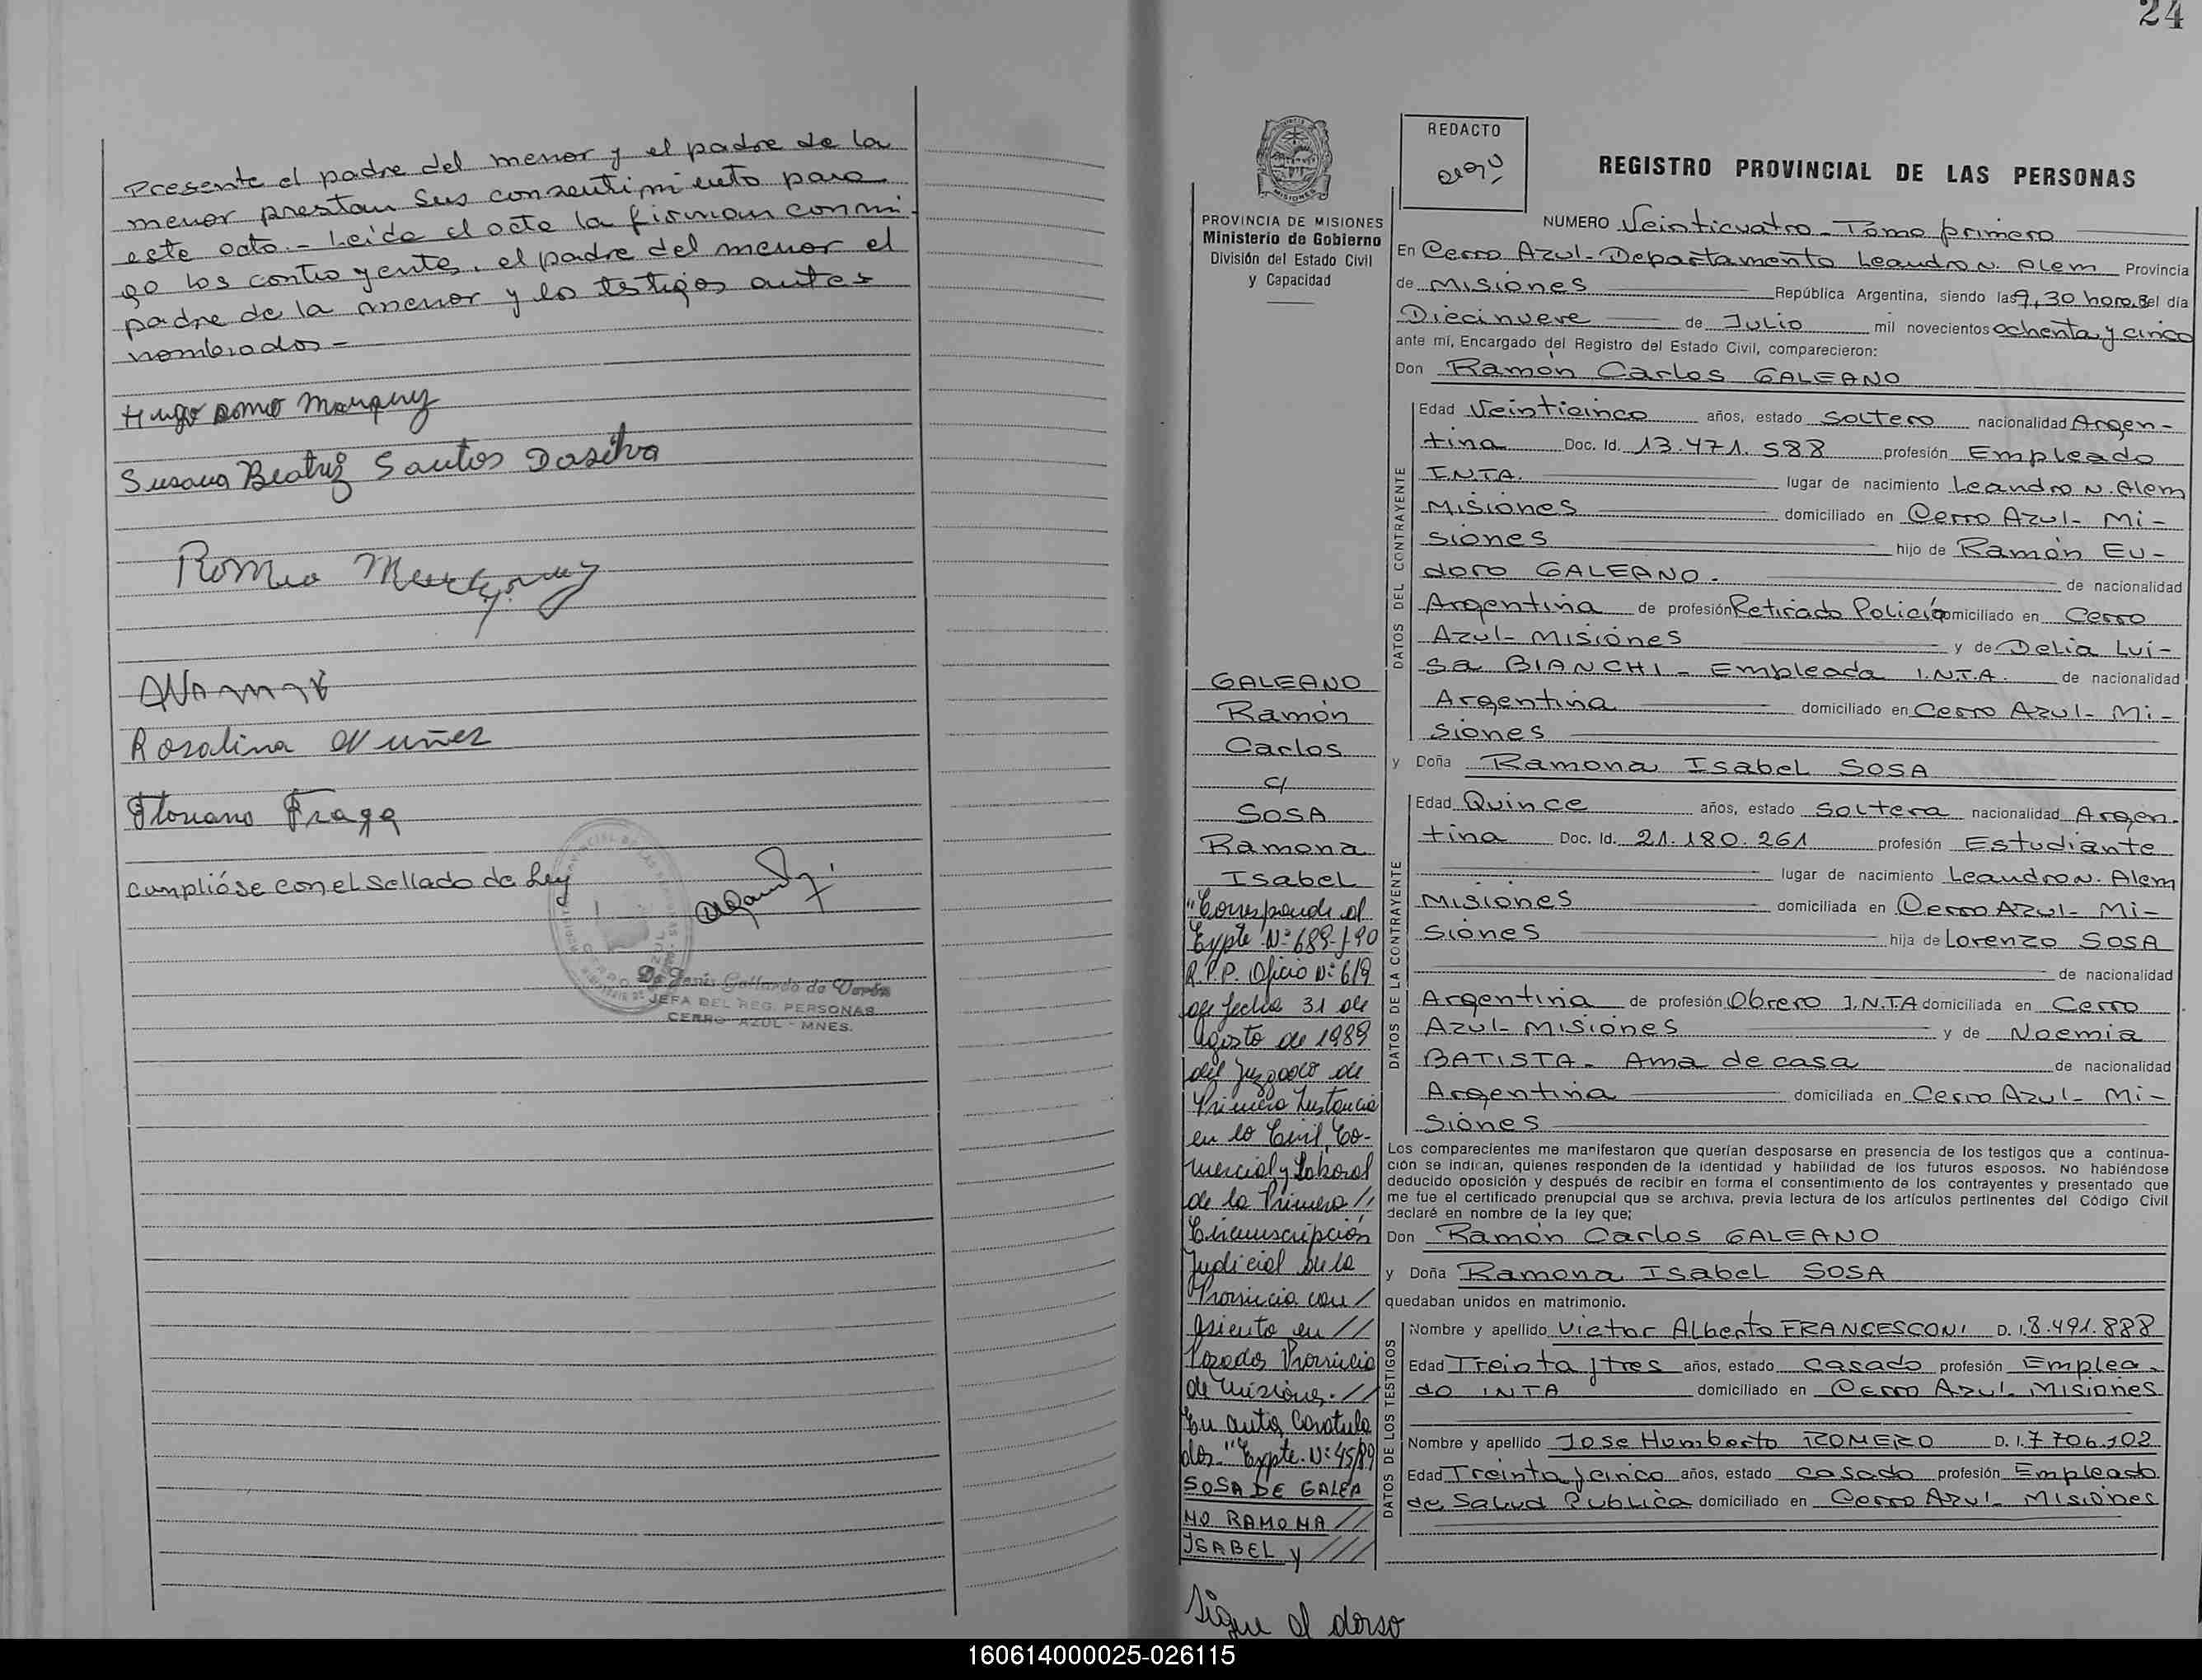 Presente el padre del menor y el padre de la
menor prestan sus consentimiento para
este acto.- Leída el acta la firman conmi
go los contrayentes, el padre del menor el
padre de la menor y los testigos antes
nombrados-
Hugo Romeo Marquez
Susana Beatriz Santos Dasilva
Romeo
Rosalina Nuñez
Floriano Fraga
Cumplióse con el Sellado de Ley
JEFA DEL REG. PERSONAS
CERRO AZUL - MNES.
24
PROVINCIA DE MISIONES
Ministerio de Gobierno
División del Estado Civil
y Capacidad
GALEANO
Ramón
Carlos
c/
SOSA
Ramona
Isabel
"Corresponde al
Expte Nº 689-J90
R.P.P. Oficio Nº 619
de fecha 31 de
Agosto de 1989
del Juzgado de
Primera Instancia
en lo Civil, Co-
mercial y Laboral
de la Primera //
Circunscripción
Judicial de la
Provincia con /
asiento en //
Posadas Provincia
de Misiones. //
En autos Caratula
dos "Expte. Nº 45/89
SOSA DE GALEA
NO RAMONA //
ISABEL y ///
Sigue al dorso
REDACTO
REGISTRO PROVINCIAL DE LAS PERSONAS
NUMERO Veinticuatro - Tomo primero
En Cerro Azul - Departamento Leandro N. Alem Provincia
de Misiones República Argentina, siendo las 9,30 horas del día
Diecinueve de Julio mil novecientos ochenta y cinco
ante mí, Encargado del Registro del Estado Civil, comparecieron:
Don Ramón Carlos GALEANO
DATOS DEL CONTRAYENTE
Edad Veinticinco años, estado Soltero nacionalidad Argen-
tina Doc. Id. 13.471.588 profesión Empleado
I.N.T.A. lugar de nacimiento Leandro N. Alem
Misiones domiciliado en Cerro Azul - Mi-
siones hijo de Ramón Eu-
doro GALEANO. de nacionalidad
Argentina de profesión Retirado Policía domiciliado en Cerro
Azul - Misiones y de Delia Lui-
sa BIANCHI - Empleada I.N.T.A. de nacionalidad
Argentina domiciliado en Cerro Azul - Mi-
siones
y Doña Ramona Isabel SOSA
DATOS DE LA CONTRAYENTE
Edad Quince años, estado Soltera nacionalidad Argen-
tina Doc. Id. 21.180.261 profesión Estudiante
lugar de nacimiento Leandro N. Alem
Misiones domiciliada en Cerro Azul - Mi-
siones hija de Lorenzo SOSA
de nacionalidad
Argentina de profesión Obrero I.N.T.A domiciliada en Cerro
Azul - Misiones y de Noemia
BATISTA - Ama de casa de nacionalidad
Argentina domiciliada en Cerro Azul - Mi-
siones
Los comparecientes me manifestaron que querían desposarse en presencia de los testigos que a continua-
ción se indican, quienes responden de la identidad y habilidad de los futuros esposos. No habiéndose
deducido oposición y después de recibir en forma el consentimiento de los contrayentes y presentado que
me fue el certificado prenupcial que se archiva, previa lectura de los artículos pertinentes del Código Civil
declaré en nombre de la ley que;
Don Ramón Carlos GALEANO
y Doña Ramona Isabel SOSA
quedaban unidos en matrimonio.
DATOS DE LOS TESTIGOS
Nombre y apellido Victor Alberto FRANCESCONI D. I. 8.491.888
Edad Treinta y tres años, estado casado profesión Emplea-
do INTA domiciliado en Cerro Azul - Misiones
Nombre y apellido Jose Humberto ROMERO D. I. 7 706.102
Edad Treinta y cinco años, estado casado profesión Empleado
de Salud Publica domiciliado en Cerro Azul - Misiones
160614000025-026115